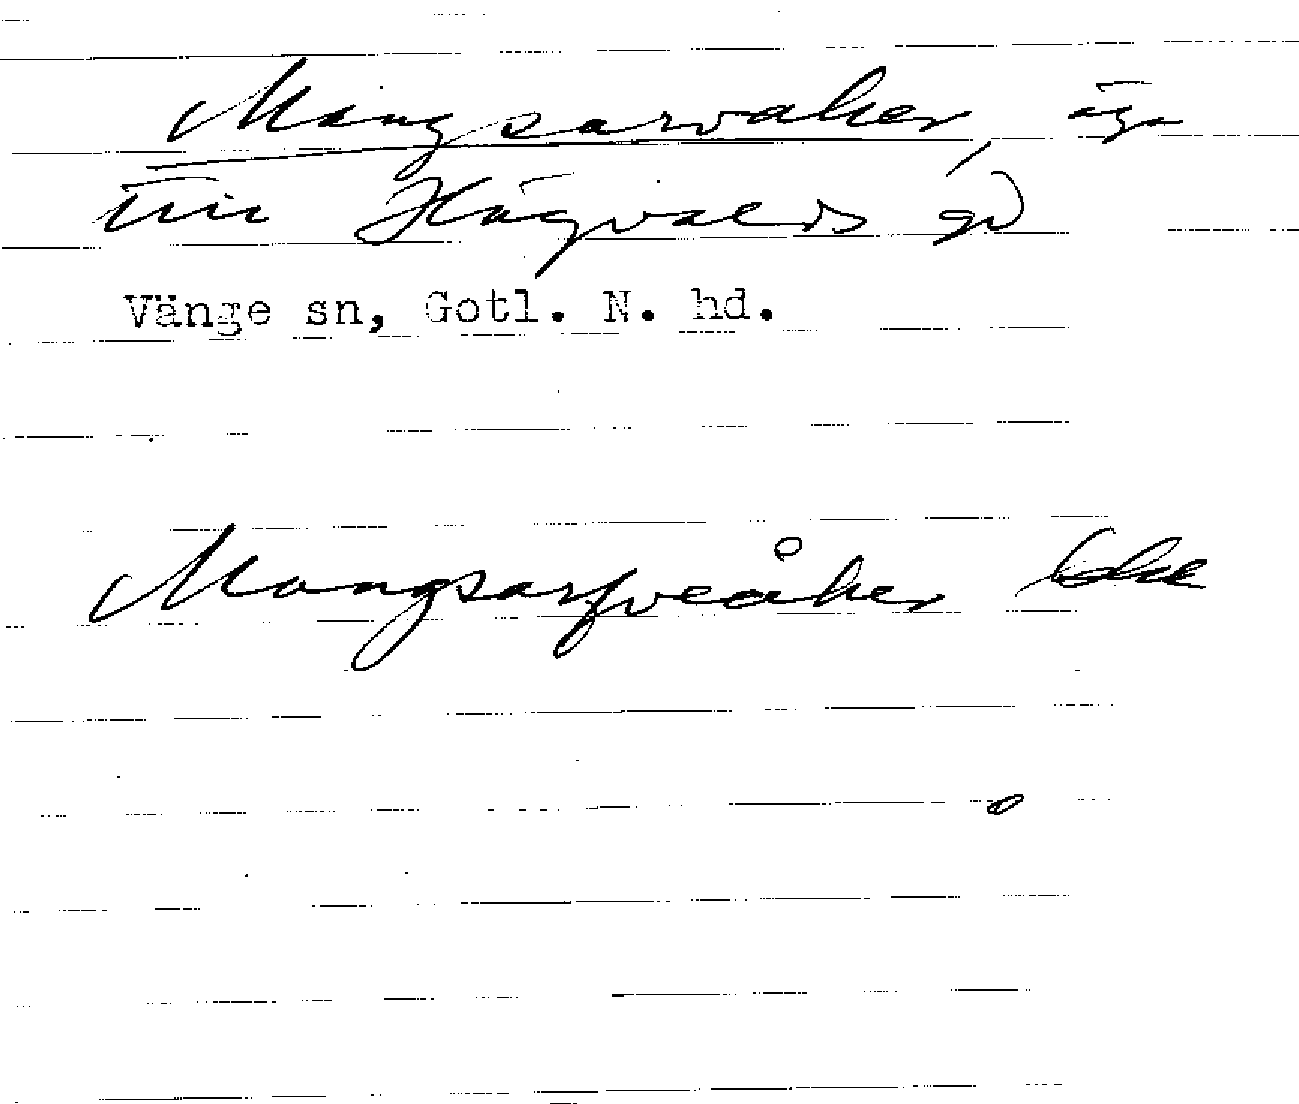 Mangsarvaker, äga
till Hägvalds gd
Vänge sn, Gotl. N. hd.
Mangsarfveåker